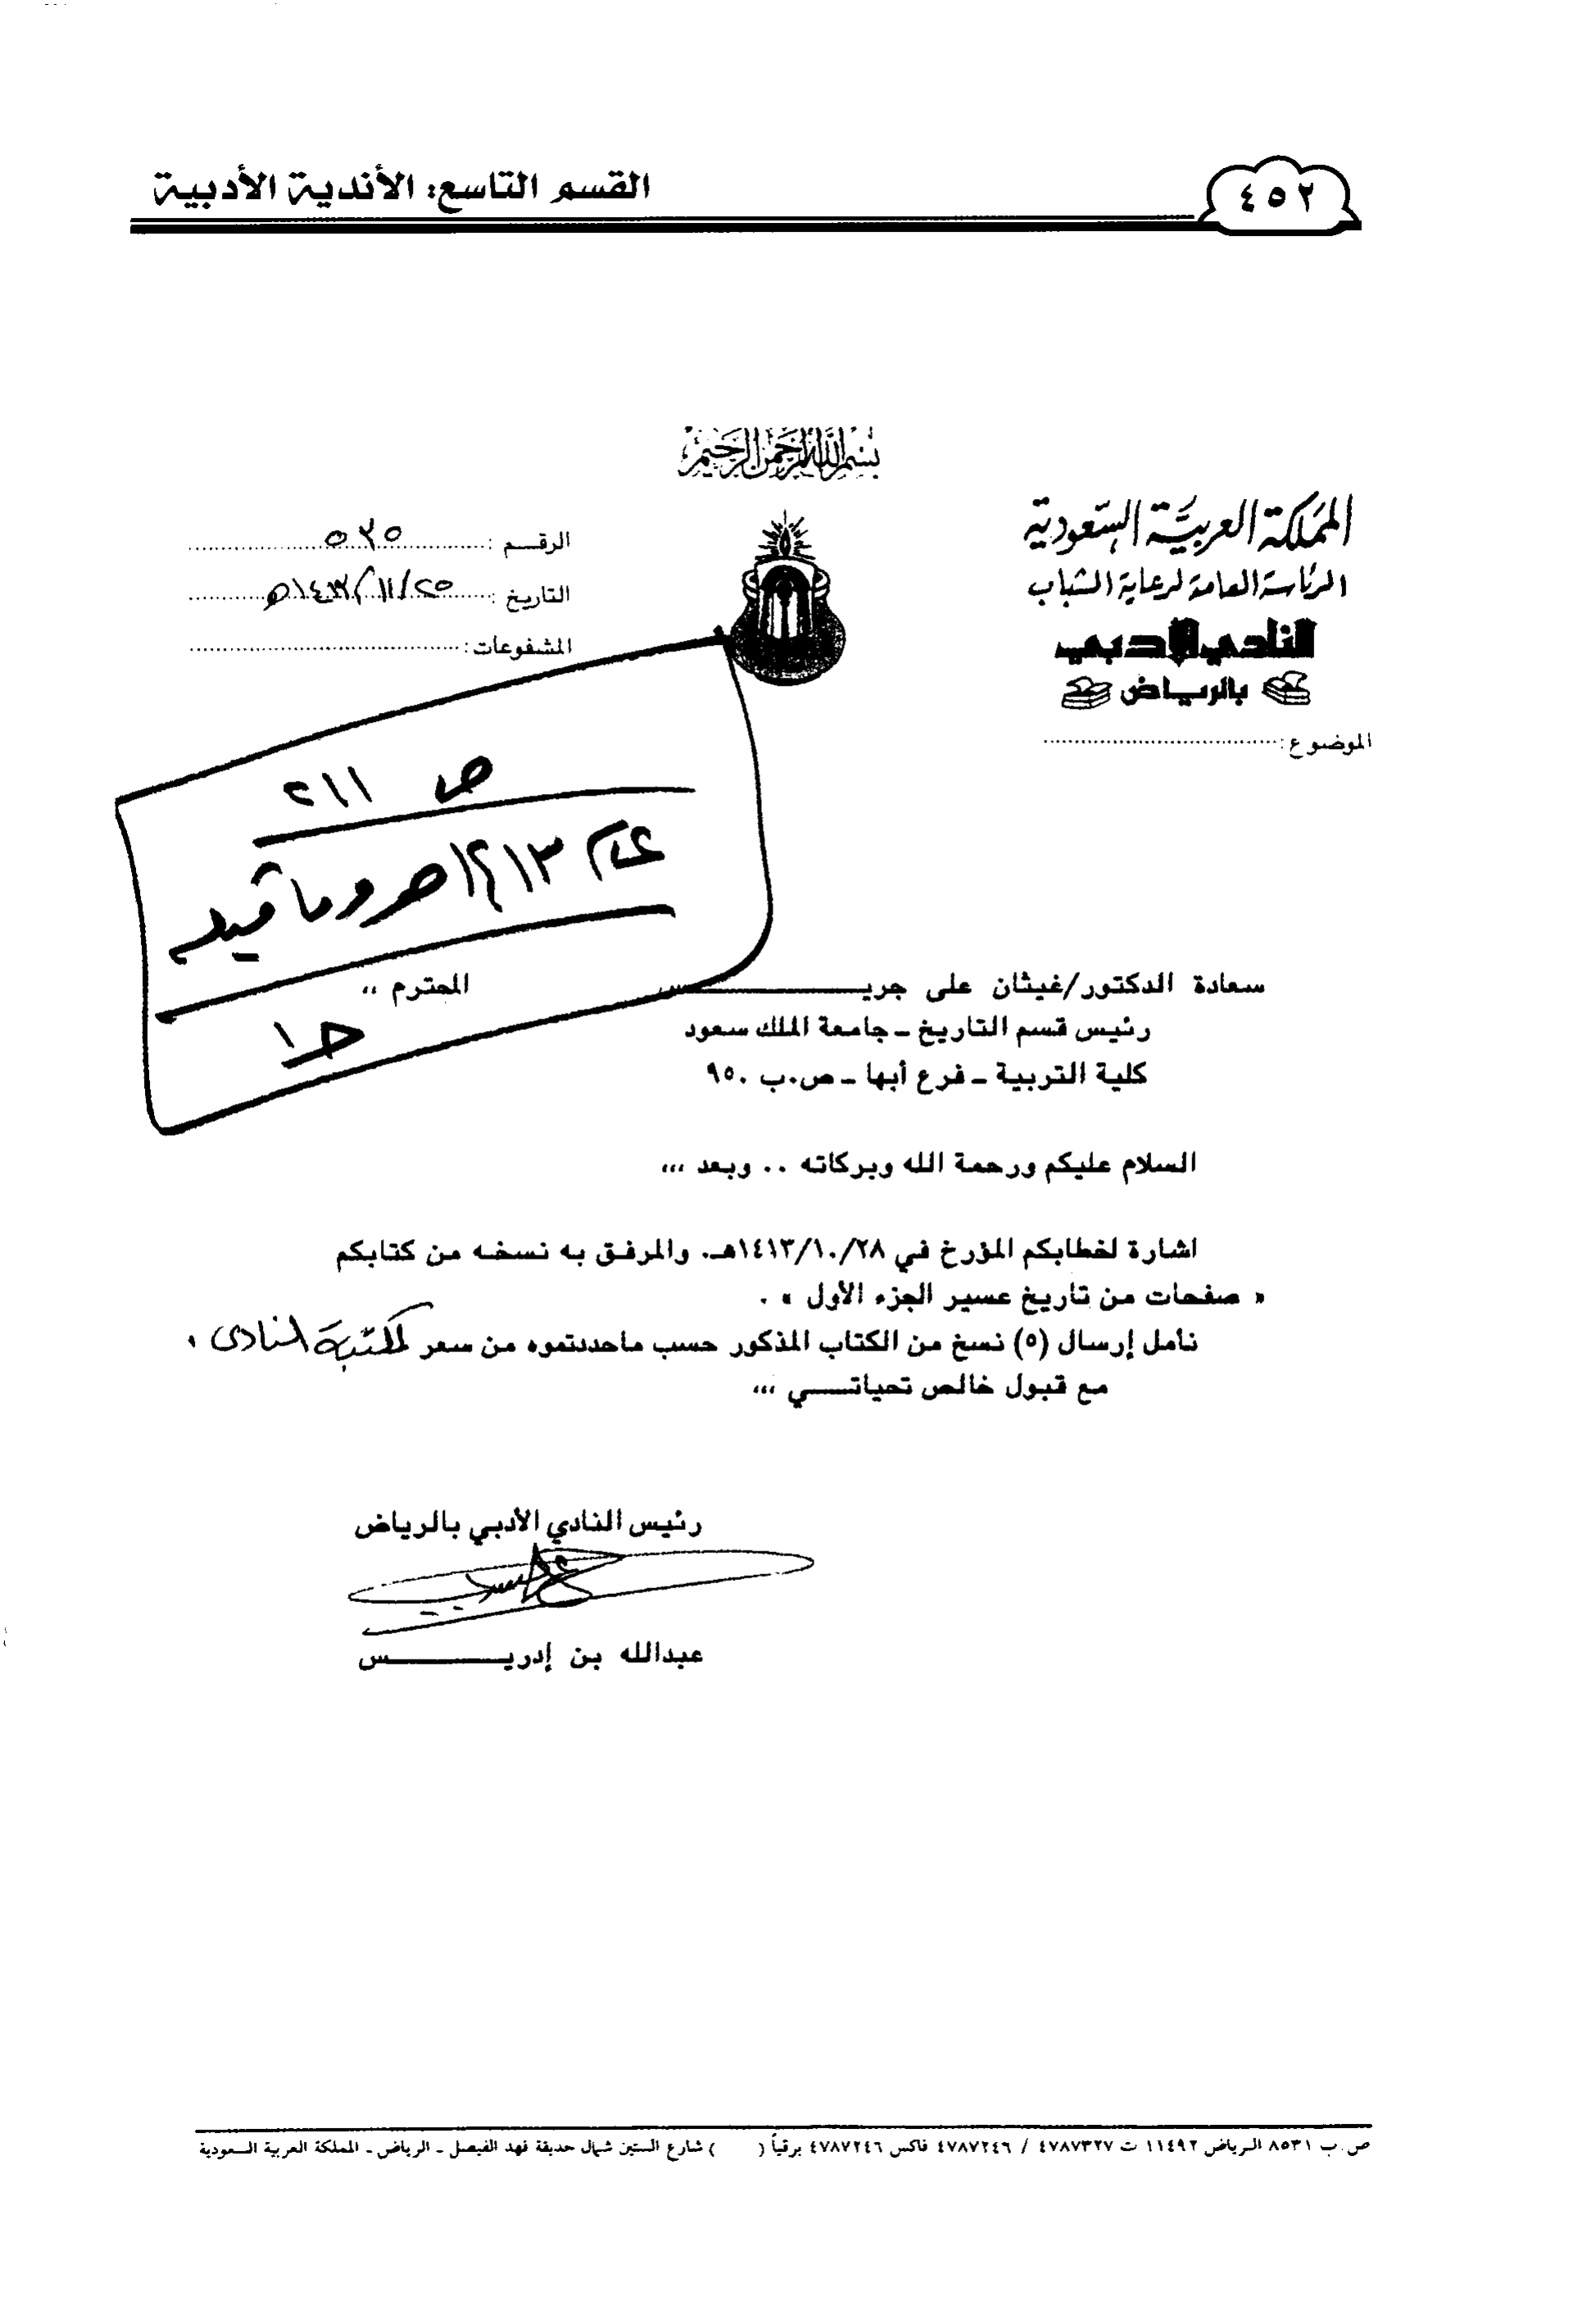 ٤٥٢
القسم التاسع: الأندية الأدبية
بسم الله الرحمن الرحيم
المملكة العربية السعودية
الرئاسة العامة لرعاية الشباب
النادي الأدبي
بالرياض
الموضوع :
الرقم : ٥٢٥
التاريخ : ٢٥/١١/١٤١٣هـ
المشفوعات :
ص ٢١١
عام ١٤١٣هـ وما قبله
ج١
سعادة الدكتور/غيثان على جريـــس المحترم ،،
رئيس قسم التاريخ ـ جامعة الملك سعود
كلية التربية ـ فرع أبها ـ ص.ب ٩٥٠
السلام عليكم ورحمة الله وبركاته .. وبعد ،،،
اشارة لخطابكم المؤرخ في ١٤١٣/١٠/٢٨هـ. والمرفق به نسخه من كتابكم
« صفحات من تاريخ عسير الجزء الأول » .
نأمل إرسال (٥) نسخ من الكتاب المذكور حسب ماحددتموه من سعر لمكتبة النادى ،
مع قبول خالص تحياتـــي ،،،
رئيس النادي الأدبي بالرياض
عبدالله بن إدريـــــس
ص. ب ٨٥٣١ الرياض ١١٤٩٢ ت ٤٧٨٧٣٢٧ / ٤٧٨٧٢٤٦ فاكس ٤٧٨٧٢٤٦ برقياً ( ) شارع الستين شمال حديقة فهد الفيصل ـ الرياض ـ المملكة العربية السعودية